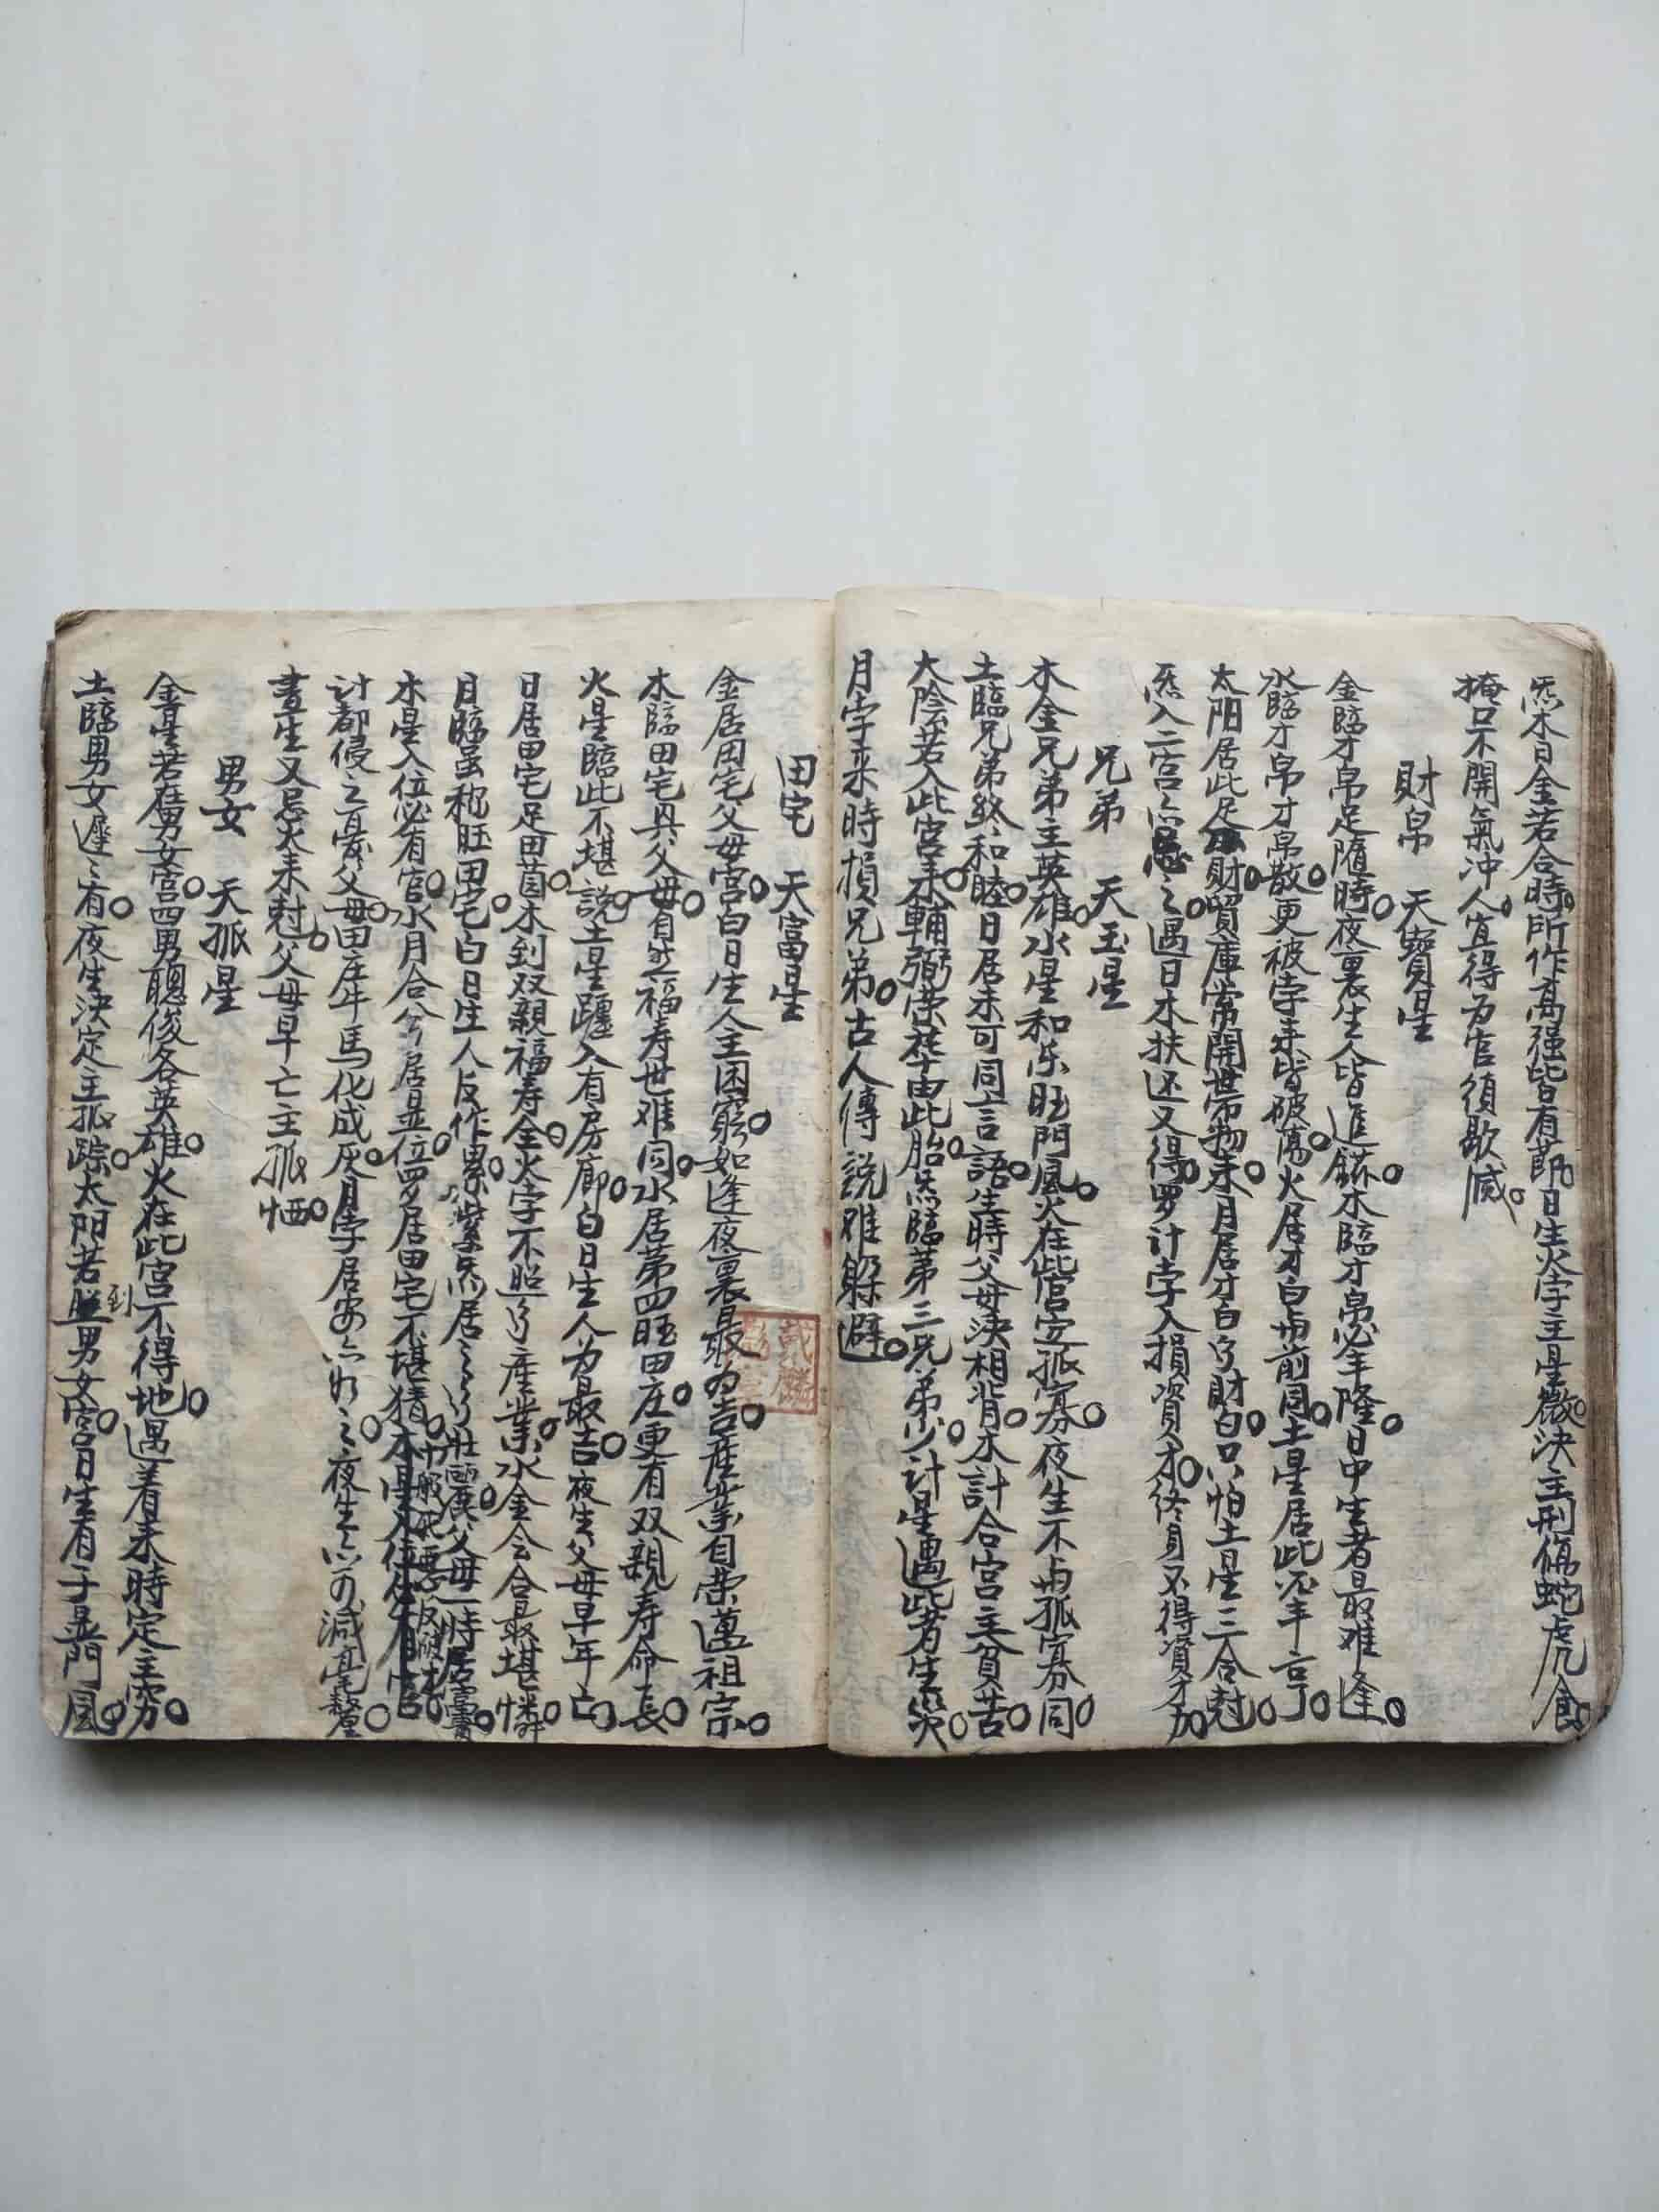 炁木日金若合時所作高强皆有節日生火孛主星微決主刑傷蛇虎食
掩口不開氣冲人宜得为官須歇滅
財帛 天寶星
金臨才帛足隨時夜裏生人皆進 木臨才帛必丰隆日中生者最难逢
水臨才帛才帛散更被孛来皆破蕩火居才白與前同土星居此必丰亨
太阳居此足財貿庫常開世帛物来月居才白了財白只怕土星三合尅
炁入二宫亦忌之遇日木扶还又得罗计孛入損資才終身不得資才力
兄弟 天玉星
木金兄弟主英雄水星和乐旺門風火在此宫定孤寡夜生不與孤寡同
土臨兄弟终和睦日居未可同言語生時父母決相背木計合宫主貧苦
大陰若入此宫来輔弼荣社由此胎炁臨第三兄弟少计星遇此者生災
月孛来時損兄弟古人傳說难躲避
田宅 天富星
金居田宅父母宫白日生人主困窮如逢夜裏最为吉產業自荣蓋祖宗
木臨田宅與父母自然福寿世难同水居第四旺田庄更有双親寿命長
火星臨此不堪說土星躔入有房廊白日生人为最吉夜生父母早年亡
日居田宅足田茵木到双親福寿全火孛不照了產業水金会合最堪憐
月臨虽称旺田宅白日生人反作累紫炁居之了壯麗父母一時居
木星入位必有官水月合兮居並位罗居田宅不堪猜
计都侵之憂父母田庄牛馬化成灰月孛居安亦如之夜生亦可減毫釐
晝生又忌火来尅父母早亡主孤恓
男女 天孤星
金星若在男女宫四男聰俊各英雄火在此宫不得地遇着来時定主窮
土臨男女遲遲有夜生決定主孤踪太阳若到男女宫日生有子是門風